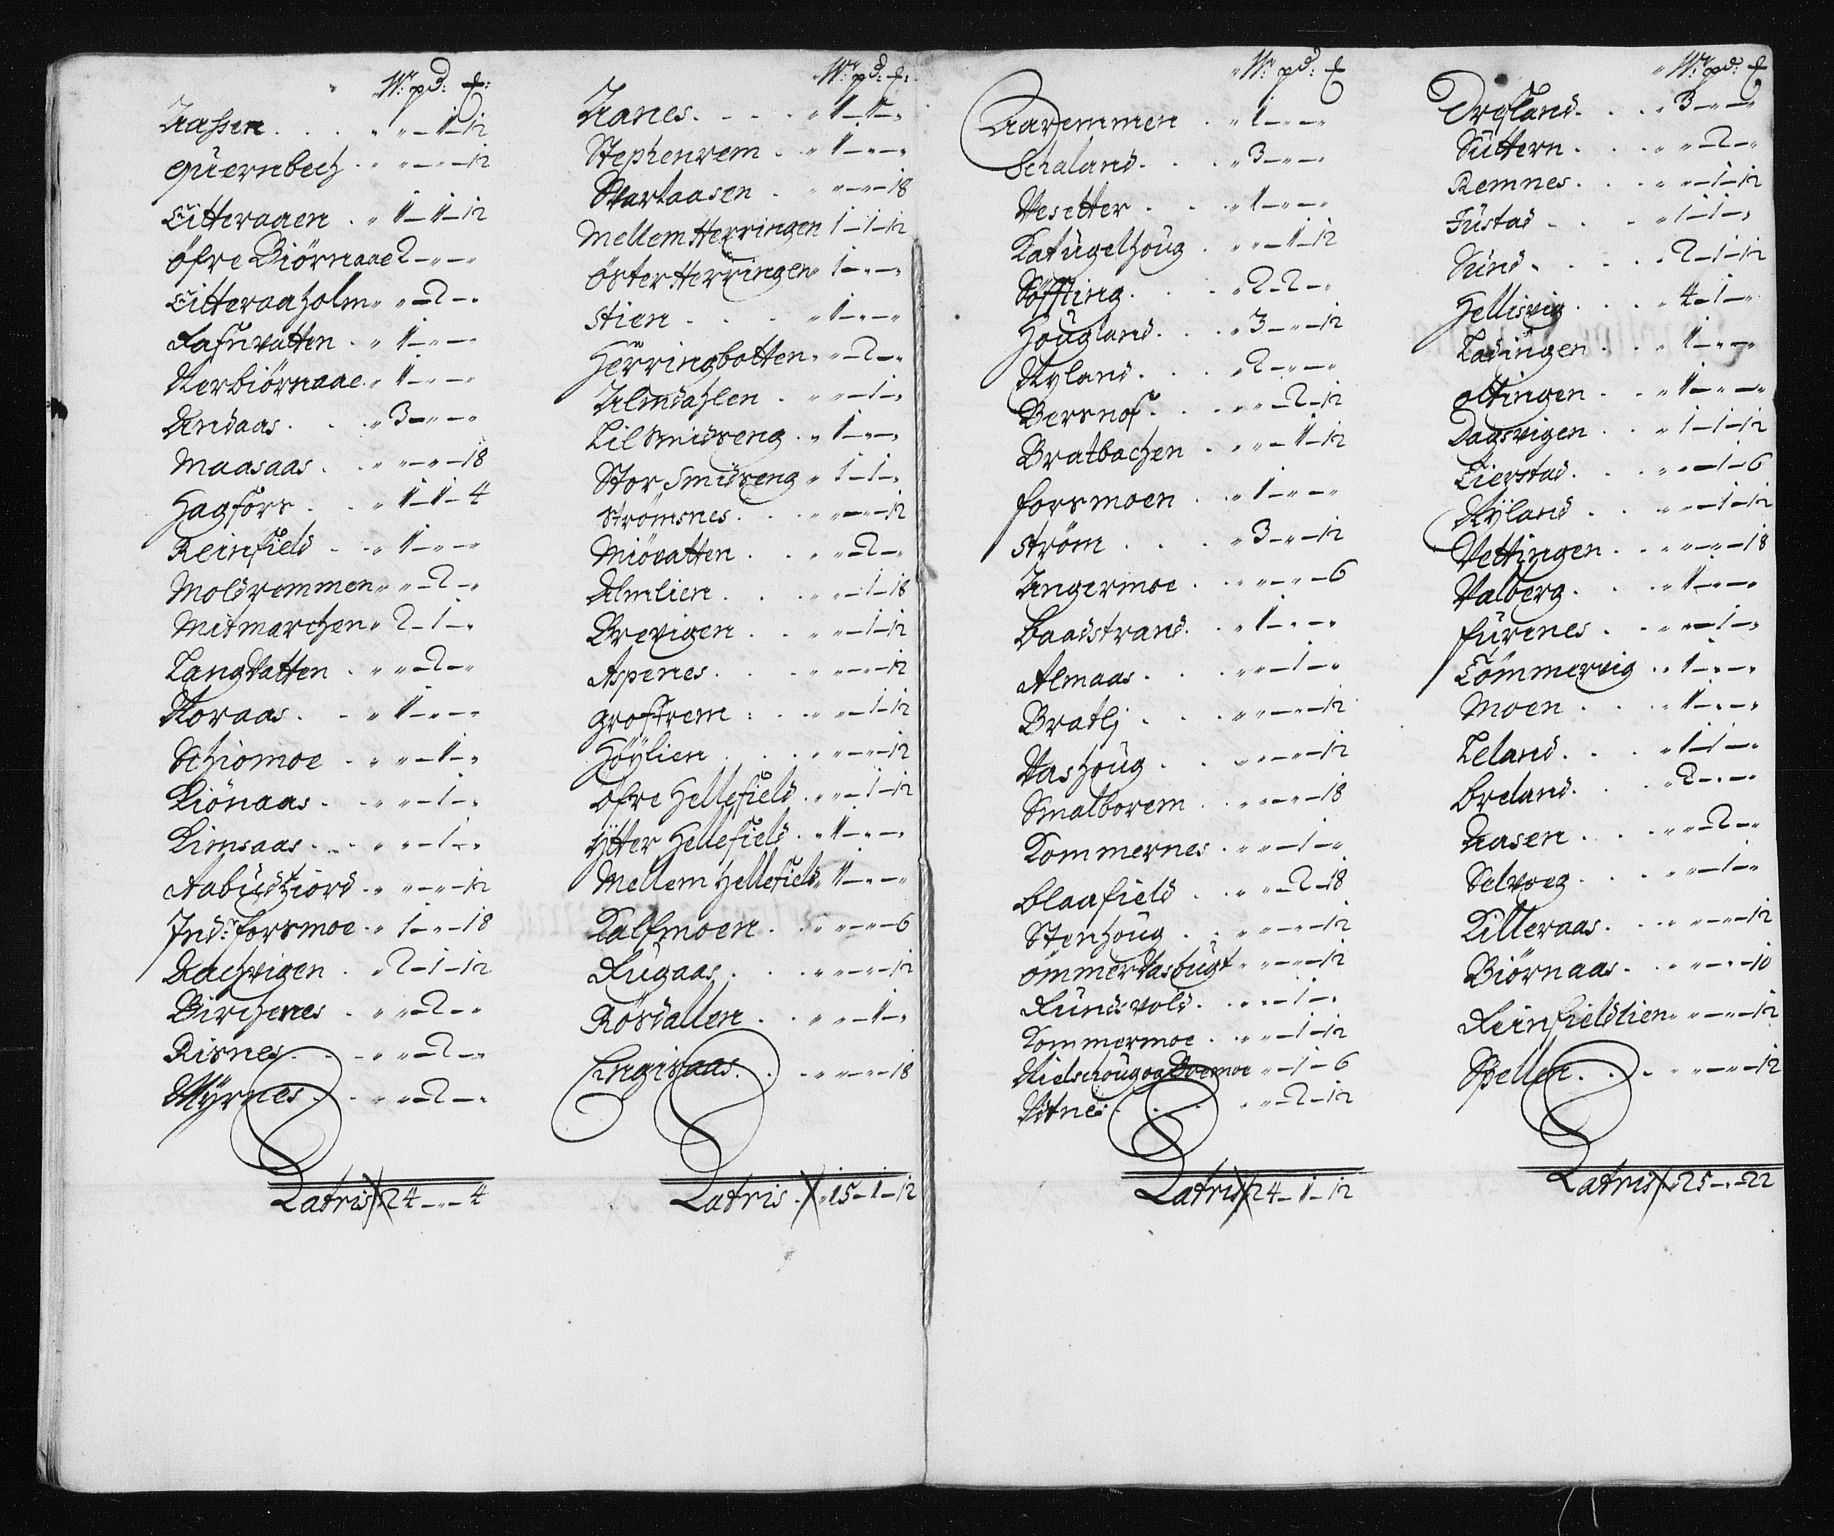 W: pd: £:
Aassen . . . . „ „ – 1 – 12
Quernbech . . „ – „ – 12
Titteraaen . „ 1 – 1 – 12
Öfre Biörnaae 2 – „ – „
Titteraaholm „ „ – 2 – „
Fasnvatten . „ 1 – „ – „
Nerbiörnaae „ 1 – „ – „
Andaas . . . „ 3 – „ – „
Maasaas . . „ – „ – 18
Hagfors . . „ 1 – 1 – 4
Reinfield . . „ 1 – „ – „
Moldremmen „ „ – 2 – „
Mitmarchen „ 2 – 1 – „
Langvatten . „ „ – 2 – „
Noraas . . „ 1 – „ – „
Schiomoe . „ „ – 1 – „
Liönaas . . „ „ – 1 – „
Limsaas . . „ „ – 1 – „
Aabudtfiord . „ „ – „ – 12
Ind: forsmoe . „ 1 – „ – 18
Dachvigen . „ 2 – 1 – 12
Birchenes . „ „ – 2 – „
Risnes . . „ „ – 2 – „
Myrnes . . „ „ – 2 – „
Latris 24 – „ – 4
W: pd: £:
Aanes . . . . „ 1 – 1 – „
Stephenrem . „ 1 – „ – „
Svartaasen . „ „ – „ – 18
Mellem Herringen 1 – 1 – 12
Öster Herringen „ 1 – „ – „
Stien . . . „ 1 – „ – „
Herringbotten „ „ – 2 – „
Almdahlen . „ „ – 1 – „
Lil Smidseng . „ 1 – „ – „
Stor Smidseng „ 1 – 1 – „
Strömsnes . . „ „ – „ – 12
Miövatten . . „ „ – 2 – „
Almlien . . . „ „ – 1 – 18
Brevigen . . „ „ – 1 – 12
Aspenes . . . „ „ – „ – 12
Grostrem : . „ „ – 1 – 12
Höylien . . . „ „ – „ – 12
Öfre Hellefield . „ „ – 1 – 12
Ytter Hellefield . „ 1 – „ – „
Mellem Hellefield „ 1 – „ – „
Kalfmoen . . „ „ – „ – 6
Rugaas . . . „ „ – „ – 12
Rösdallen . . „ „ – 1 – „
Engisaas . . „ „ – „ – 18
Latris . „ 15 – 1 – 12
W: pd: £
Aaremmen . „ 1 – „ – „
Schaland . . „ 3 – „ – „
Vesetter . . „ 1 – „ – „
Katugelhoug . „ „ – 1 – 12
Söffting . . „ 2 – 2 – „
Hougland . . „ 3 – „ – 12
Nyland . . . „ 2 – „ – „
Bersnof . . „ „ – 2 – 12
Bratbachen . „ „ – 1 – 12
forsmoen . . „ 1 – „ – „
Ström . . . „ 3 – „ – 12
Angermoe . „ „ – „ – 6
Baadstrand . „ 1 – „ – „
Almaas . . . „ „ – 1 – „
Bratlj . . . „ „ – „ – 12
Vashoug . . „ „ – „ – 12
Smalborem . „ „ – „ – 18
Kommernes . „ „ – 1 – „
Blaafield . . „ „ – 2 – 18
Stenhoug . . „ „ – „ – 12
Ömmervasbugt „ „ – „ – 12
Rundsvold . „ „ – 1 – „
Kommermoe . „ „ – 1 – 12
Nielschoug og Bremoe „ – 1 – 6
Vitnes . . . „ „ – 2 – 12
Latris 24 – 1 – 12
W: pd: £
Drefland . . „ 3 – „ – „
Suttern . . . „ „ – 2 – „
Remnes . . . „ „ – 1 – 12
Justad . . . „ 1 – 1 – „
Sund . . . . „ 2 – 1 – 12
Hellisvig . . „ 4 – 1 – „
Ladingen . . „ 1 – „ – „
Oltingen . . „ 1 – „ – „
Dagsvigen . . „ 1 – 1 – 12
Tierstad . . „ „ – 1 – 6
Nyland . . . „ „ – 1 – 12
Vettingen . . „ „ – „ – 18
Valberg . . . „ 1 – „ – „
fürenes . . . „ „ – 1 – „
Tömmervig . „ 1 – „ – „
Moen . . . „ 1 – „ – „
Leland . . . „ 1 – 1 – „
Breland . . . „ 2 – „ – „
Aasen . . . „ „ – 2 – „
Selvoeg . . . „ „ – 1 – „
Killeraas . . „ „ – „ – 12
Biörnaas . . „ „ – „ – 10
Reinfieldlien „ „ – „ – 12
Spellen . . . „ „ – „ – 12
Latris 25 – „ – 22